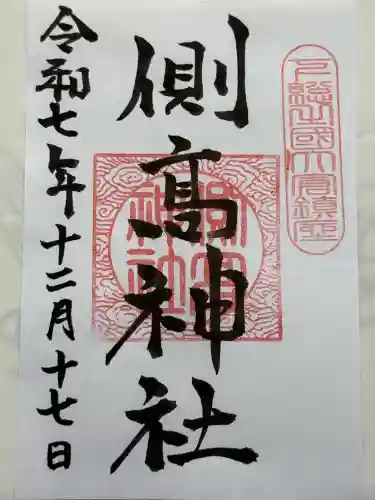 下總國大倉鎮座
側高神社
側高
神社
令和七年十二月十七日